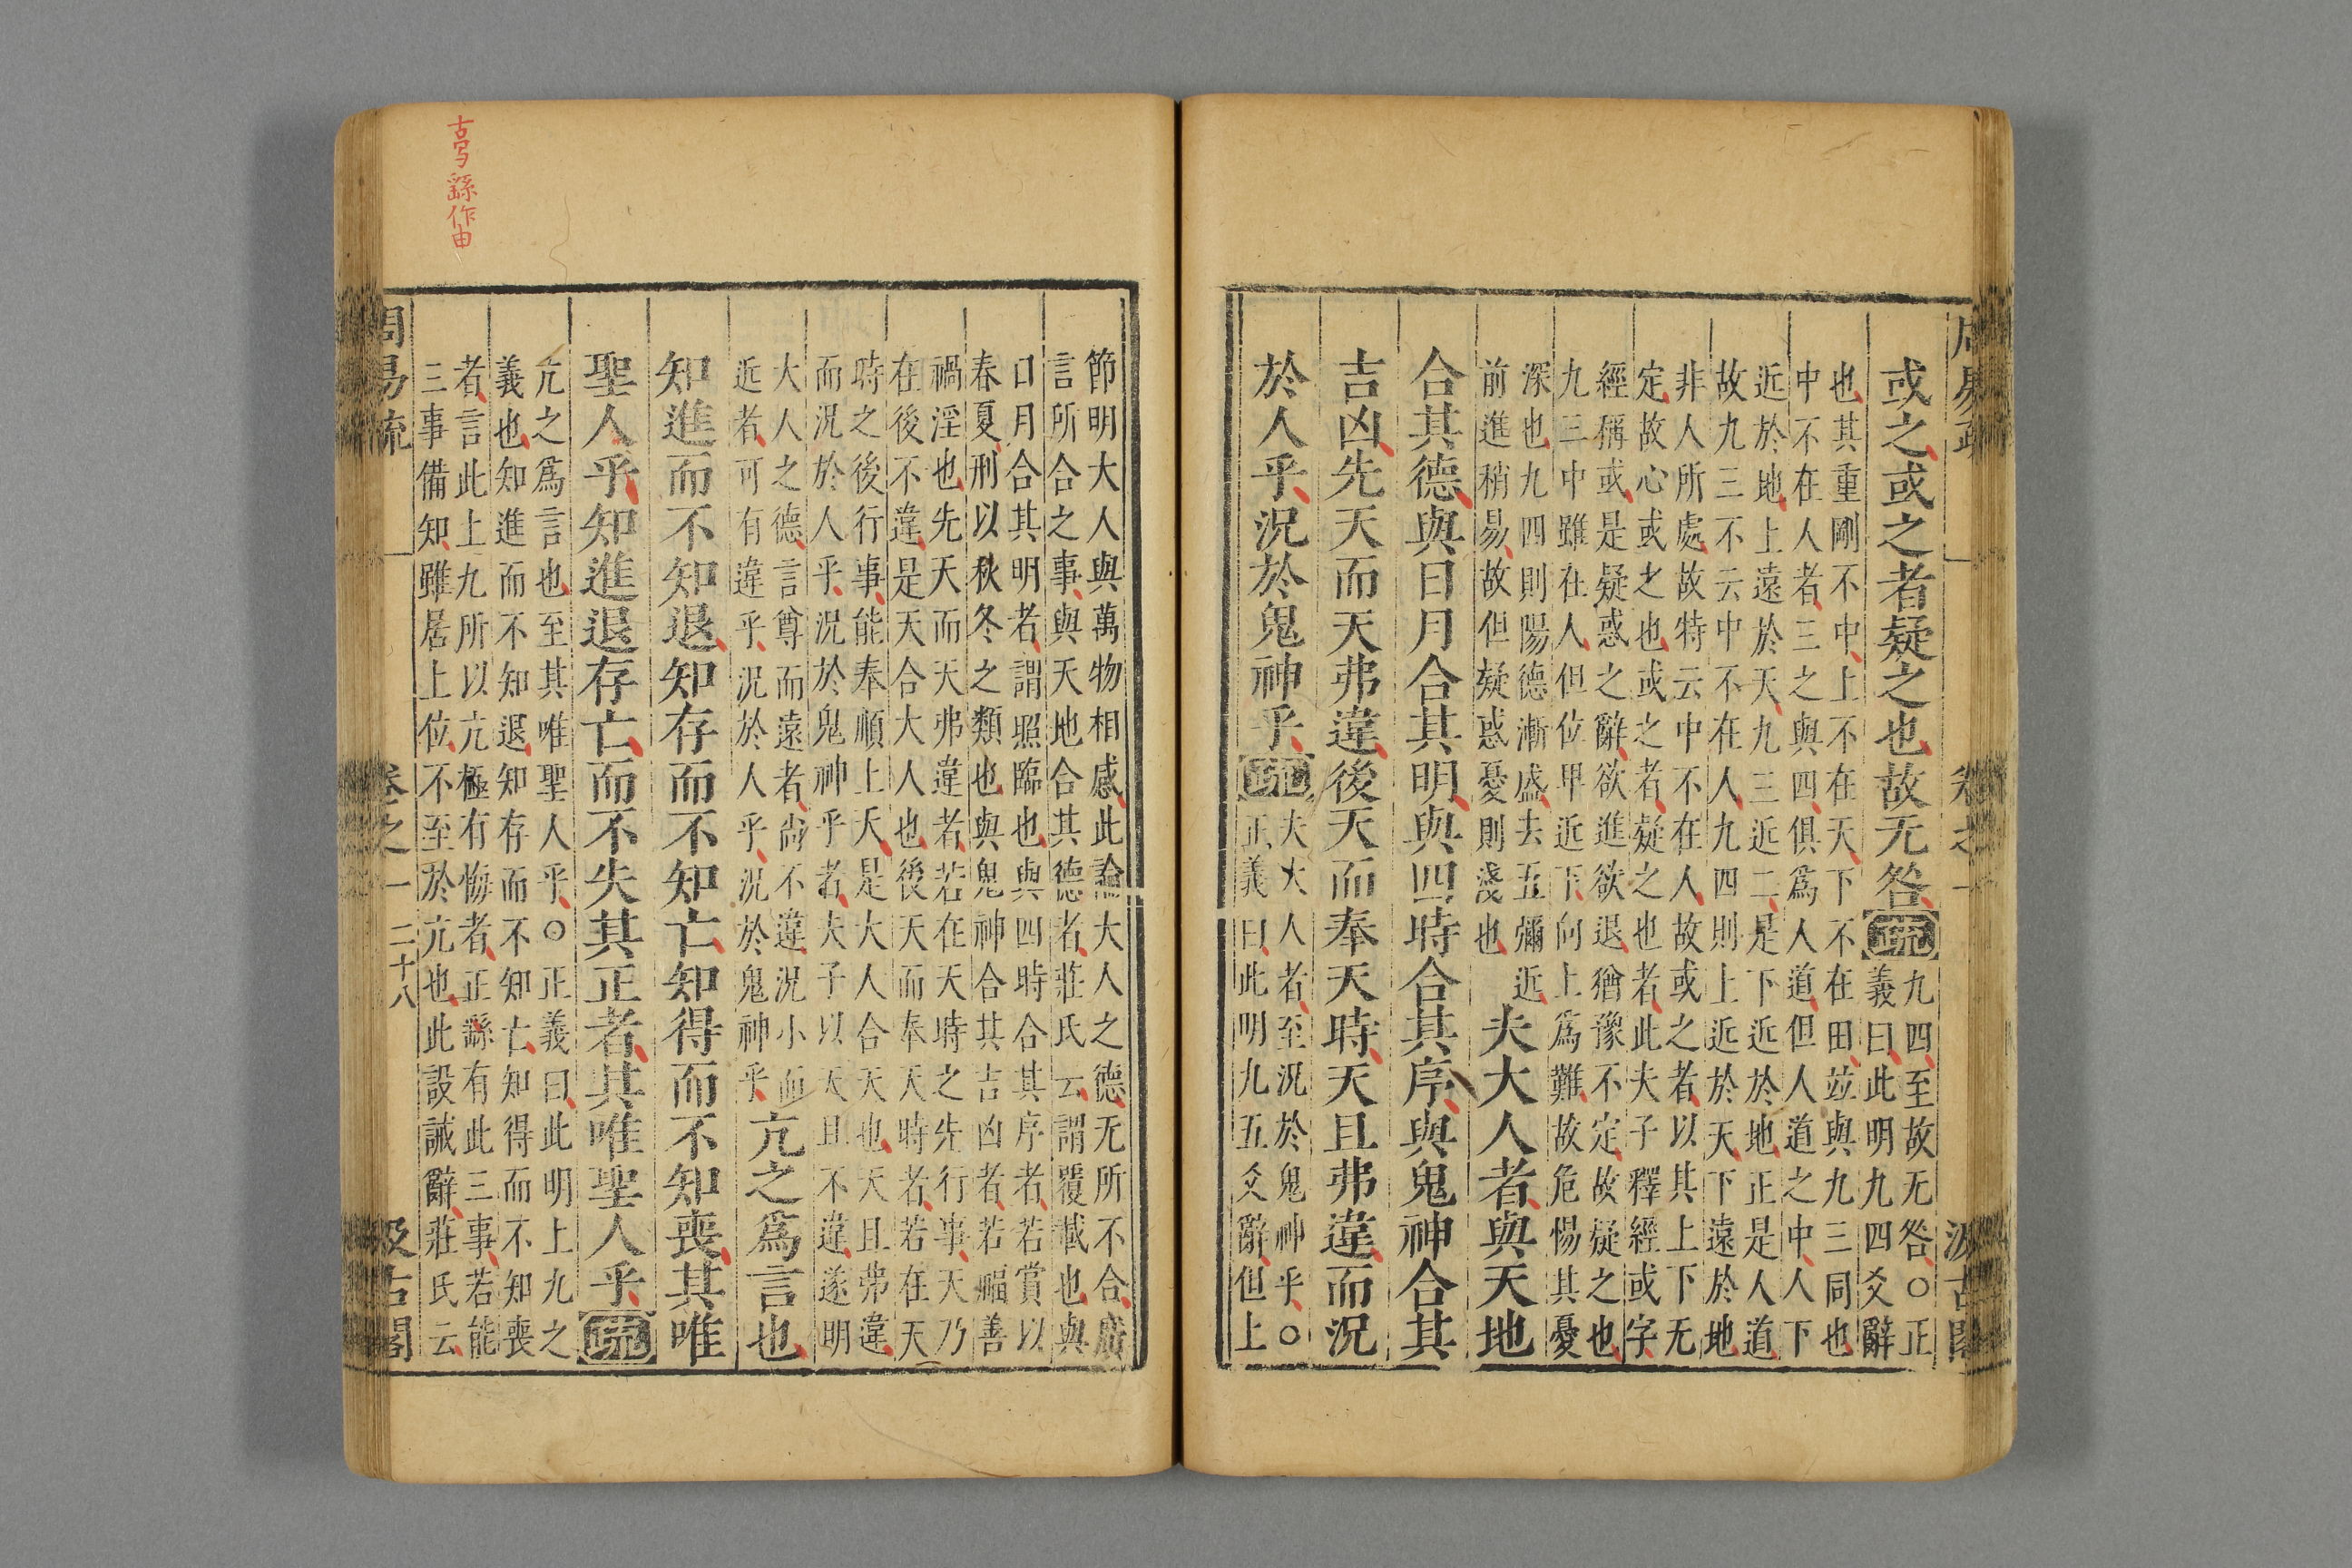 或之或之者疑之也故无咎疏
九四至故无咎○正
義曰此明九四爻辭
也其重剛不中上不在天下不在田竝與九三同也
中不在人者三之與四俱爲人道但人道之中人下
近於地上遠於天九三近二是下近於地正是人道
故九三不云中不在人九四則上近於天下遠於地
非人所處故特云中不在人故或之者以其上下无
定故心或之也或之者疑之也者此夫子釋經或字
經稱或是疑惑之辭欲進欲退猶豫不定故疑之也
九三中雖在人但位卑近下向上爲難故危惕其憂
深也九四則陽德漸盛去五彌近
前進稍易故但疑惑憂則淺也
夫大人者與天地
合其德與日月合其明與四時合其序與鬼神合其
吉凶先天而天弗違後天而奉天時天且弗違而況
於人乎況於鬼神乎疏
夫大人者至況於鬼神乎○
正義曰此明九五爻辭但上
節明大人與萬物相感此論大人之德无所不合廣
言所合之事與天地合其德者莊氏云謂覆載也與
日月合其明者謂照臨也與四時合其序者若賞以
春夏刑以秋冬之類也與鬼神合其吉凶者若福善
禍淫也先天而天弗違者若在天時之先行事天乃
在後不違是天合大人也後天而奉天時者若在天
時之後行事能奉順上天是大人合天也天且弗違
而況於人乎況於鬼神乎者夫子以天且不違遂明
大人之德言尊而遠者尙不違況小而
近者可有違乎況於人乎況於鬼神乎
亢之爲言也
知進而不知退知存而不知亡知得而不知喪其唯
聖人乎知進退存亡而不失其正者其唯聖人乎疏
亢之爲言也至其唯聖人乎○正義曰此明上九之
義也知進而不知退知存而不知亡知得而不知喪
者言此上九所以亢極有悔者正繇有此三事若能
三事備知雖居上位不至於亢也此設誡辭莊氏云
周易疏 卷之一 二十八 汲古閣
繇作由